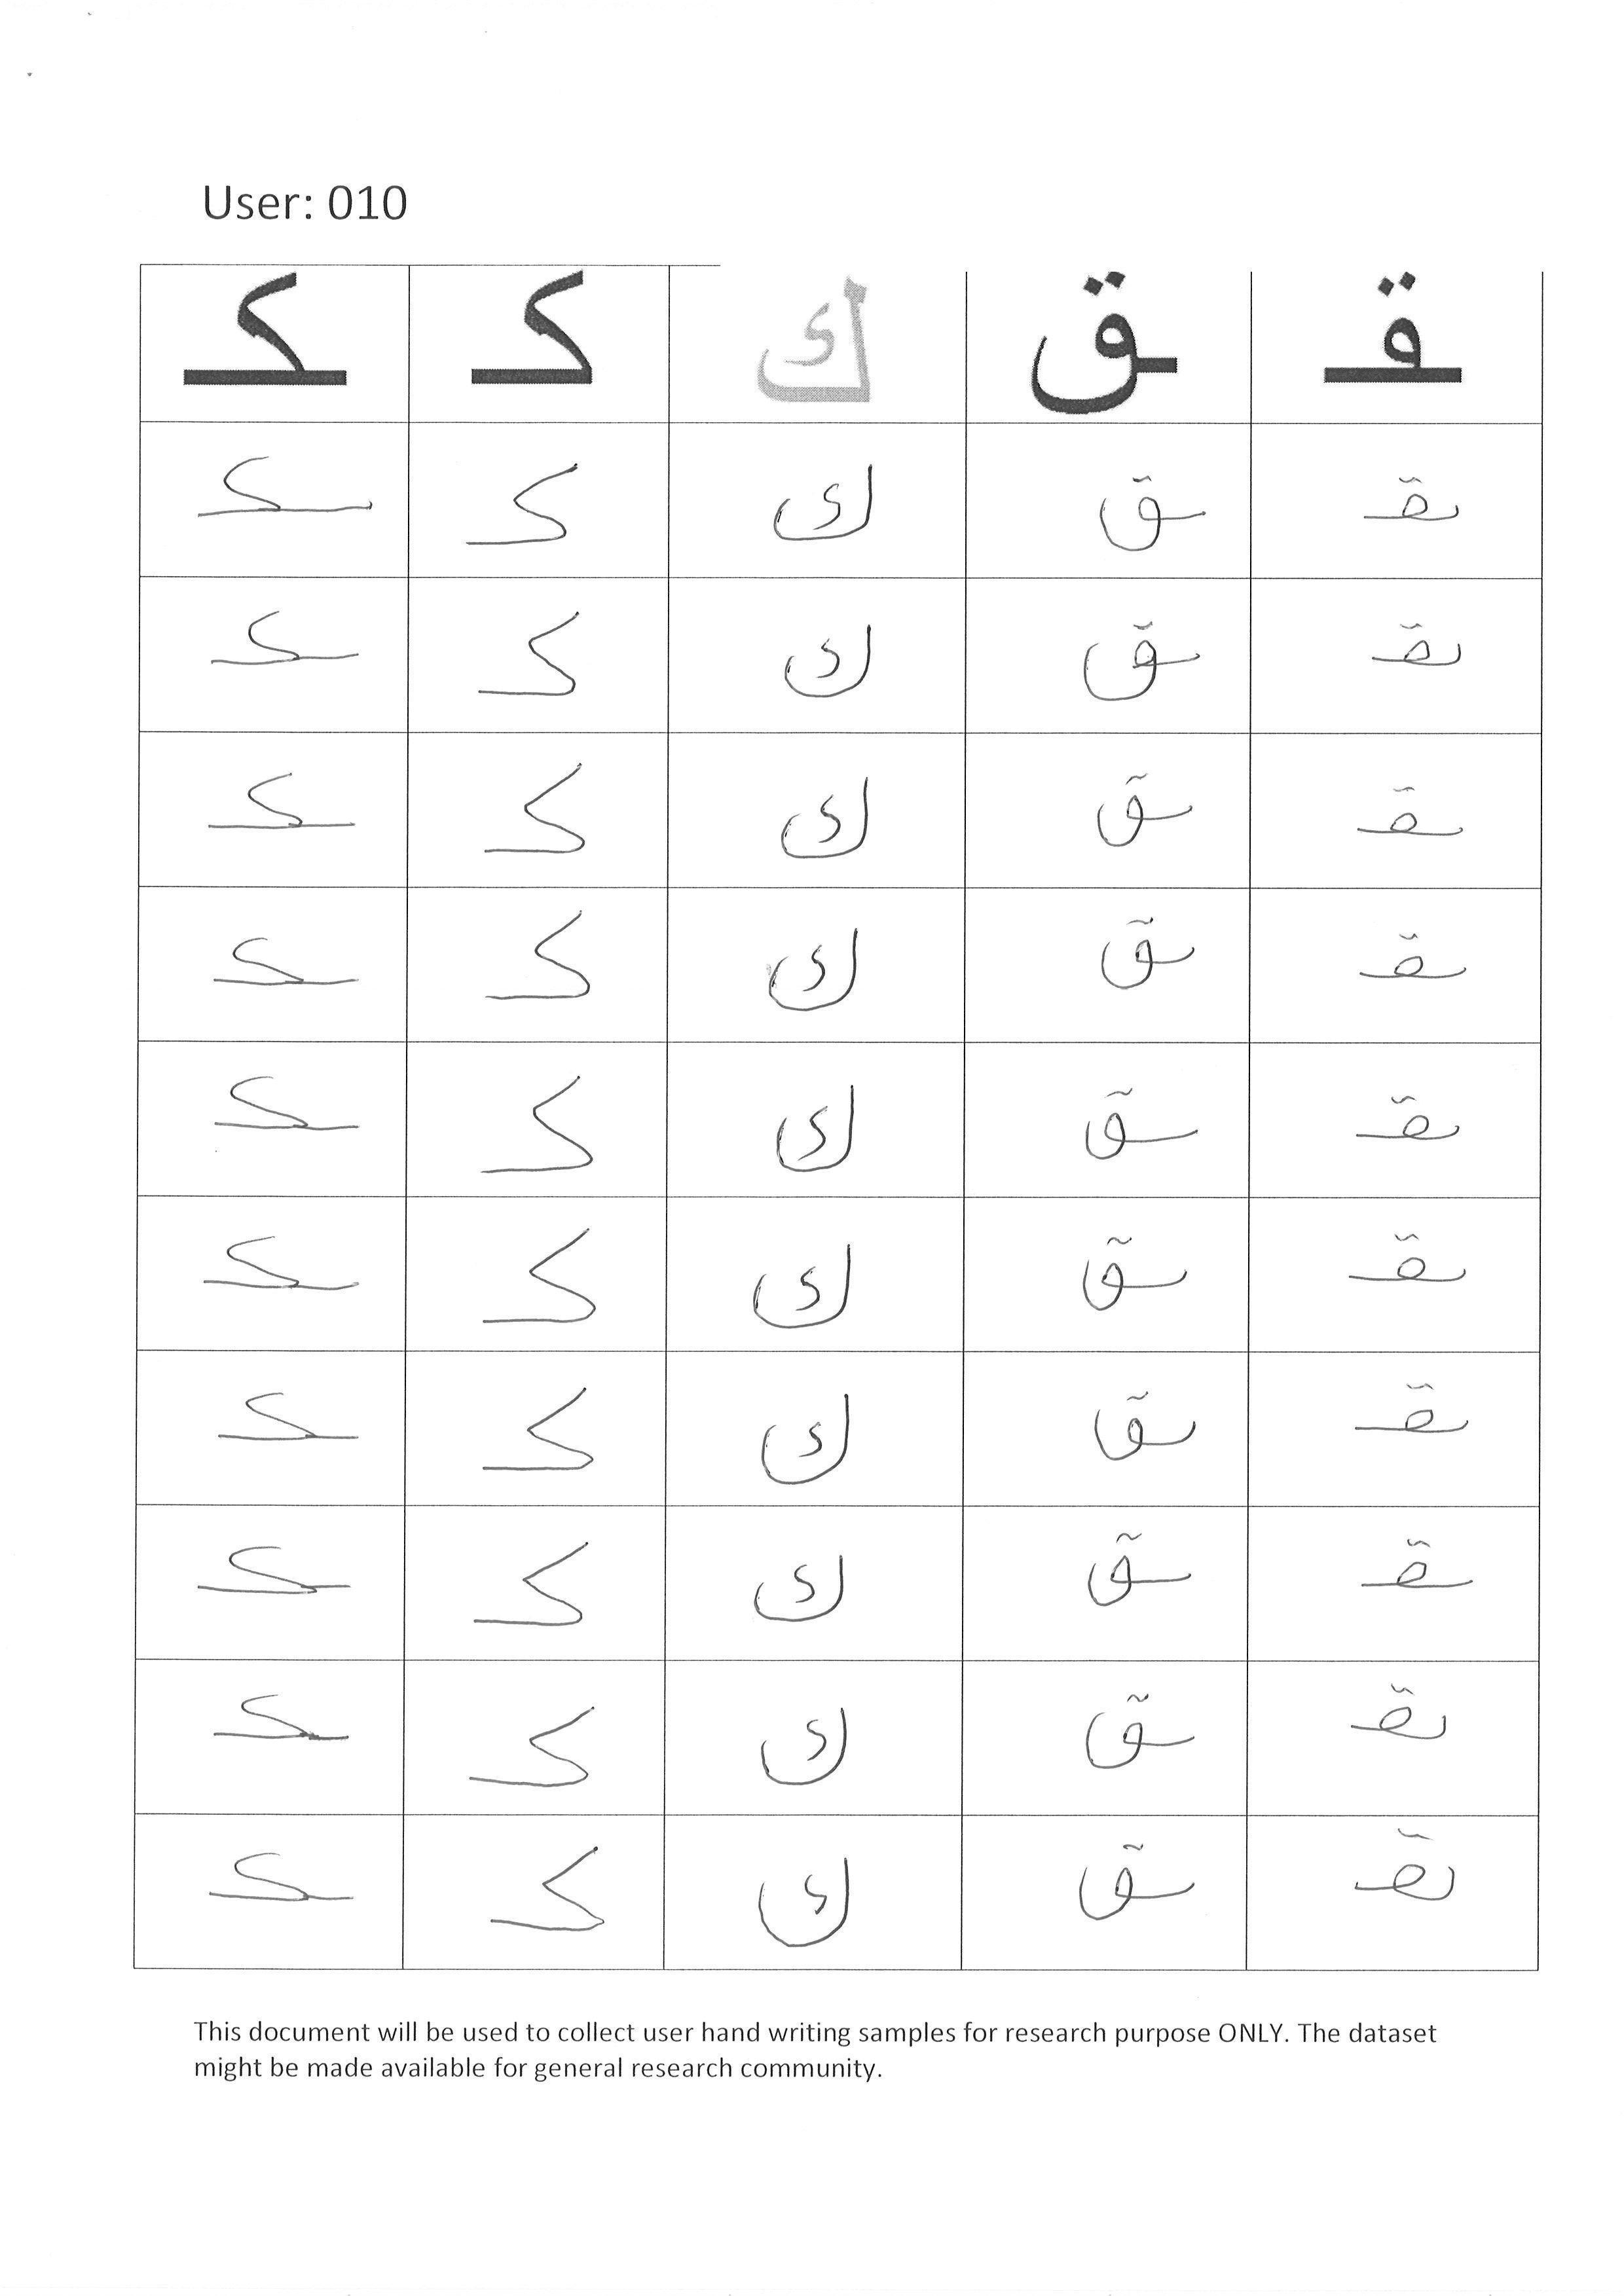 User: 010
ـكـ كـ ك ـق ـقـ
ـكـ كـ ك ـق ـقـ
ـكـ كـ ك ـق ـقـ
ـكـ كـ ك ـق ـقـ
ـكـ كـ ك ـق ـقـ
ـكـ كـ ك ـق ـقـ
ـكـ كـ ك ـق ـقـ
ـكـ كـ ك ـق ـقـ
ـكـ كـ ك ـق ـقـ
ـكـ كـ ك ـق ـقـ
ـكـ كـ ك ـق ـقـ
This document will be used to collect user hand writing samples for research purpose ONLY. The dataset
might be made available for general research community.